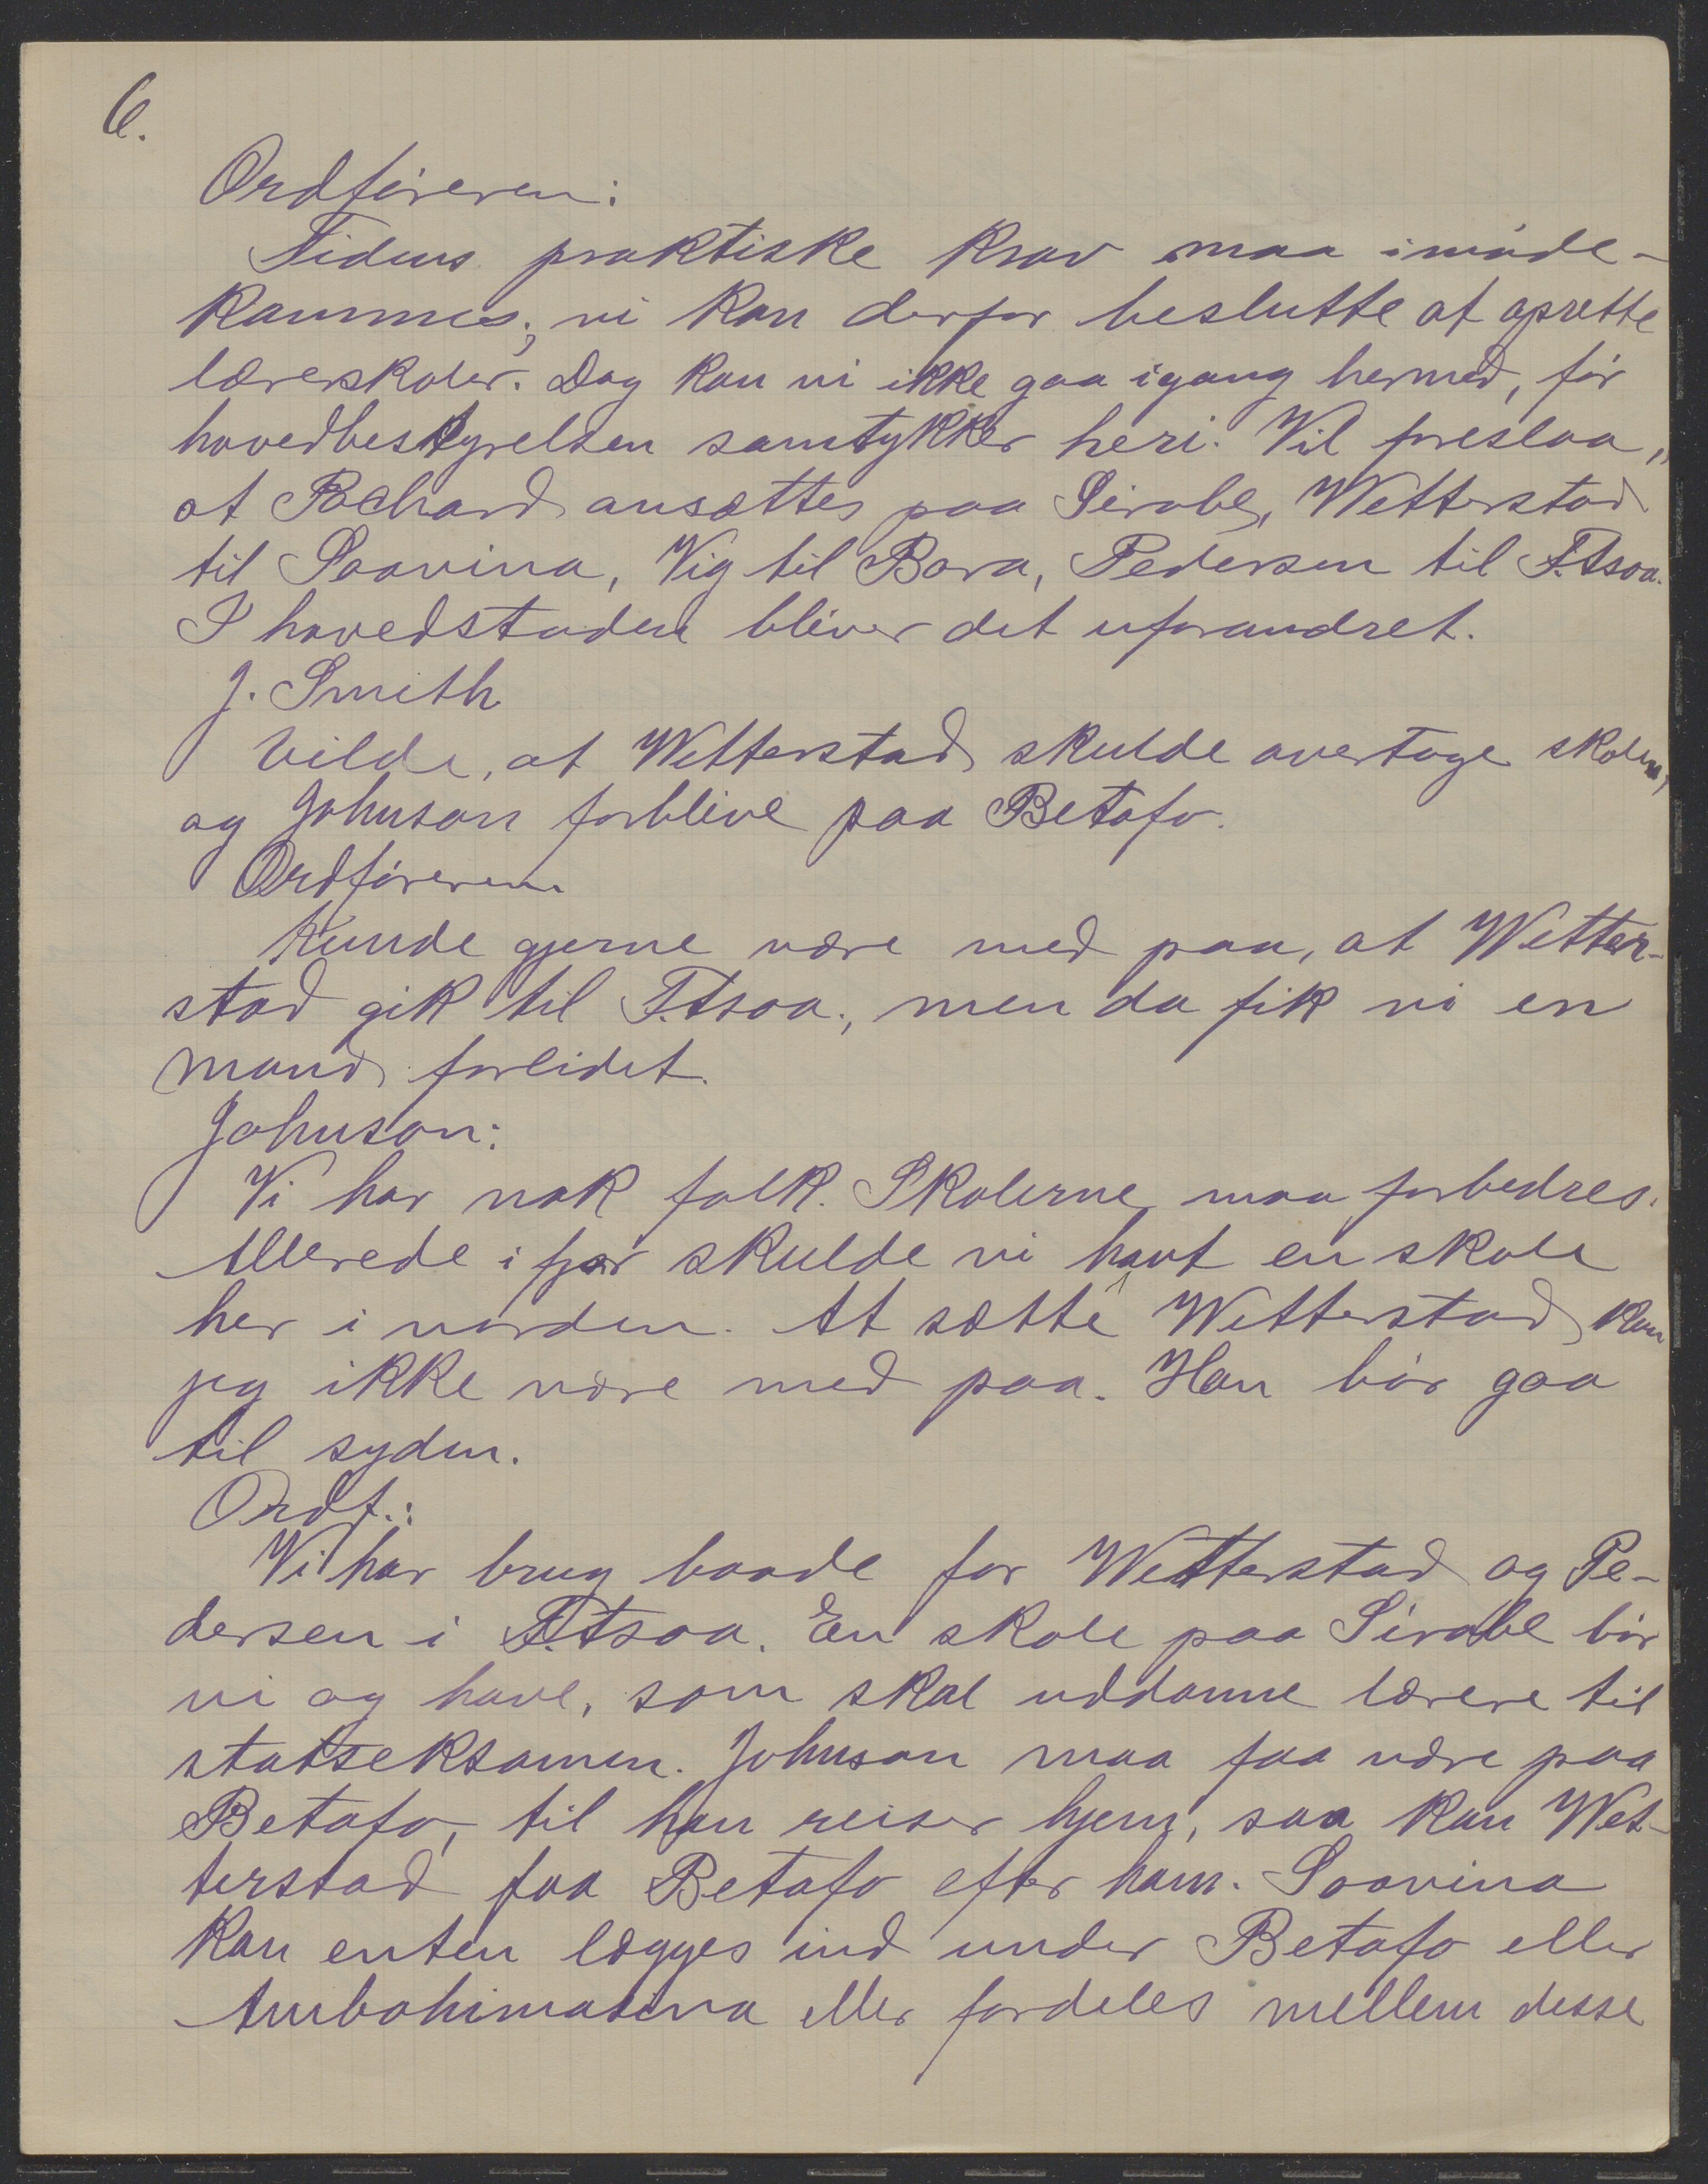 6.
Ordføreren:
Tidens praktiske krav maa imøde-
kommes; vi kan derfor beslutte at oprette
lærerskoler. Dog kan vi ikke gaa igang hermed, før
hovedbestyrelsen samtykker heri. Vil foreslaa,
at Bochard ansættes paa Sirabe, Wetterstad
til Soavina, Vig til Bara, Pedersen til F.tsoa.
I hovedstaden bliver det uforandret.
J. Smith
Vilde, at Wetterstad skulde overtage skolen,
og Johnson forblive paa Betafo.
Ordføreren
Kunde gjerne være med paa, at Wetter-
stad gik til F.tsoa., men da fik vi en
mand forlidet.
Johnson:
Vi har nok folk. Skolerne maa forbedres.
Allerede i fjor skulde vi havt en skole
her i norden. At sætte Wetterstad kan
jeg ikke være med paa. Han bør gaa
til syden.
Ordf.:
Vi har brug baade for Wetterstad og Pe-
dersen i F.tsoa. En skole paa Sirabe bør
vi og have, som skal uddanne lærere til
statseksamen. Johnson maa faa være paa
Betafo, til han reiser hjem, saa kan Wet-
terstad faa Betafo efter ham. Soavina
kan enten lægges ind under Betafo eller
Ambohimasina eller fordeles mellem disse